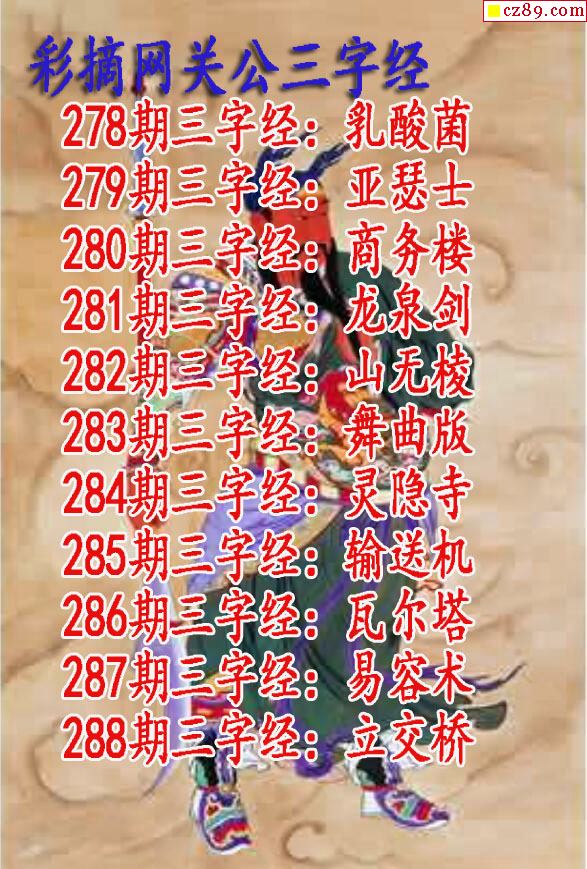 cz89.com
彩摘网关公三字经
278期三字经：乳酸菌
279期三字经：亚瑟士
280期三字经：商务楼
281期三字经：龙泉剑
282期三字经：山无棱
283期三字经：舞曲版
284期三字经：灵隐寺
285期三字经：输送机
286期三字经：瓦尔塔
287期三字经：易容术
288期三字经：立交桥